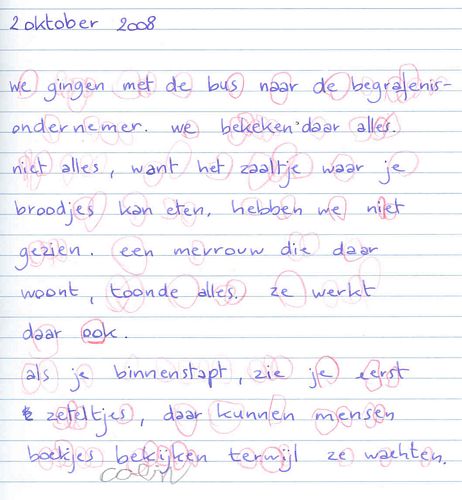 2 oktober 2008
we gingen met de bus naar de begrafenis-
ondernemer. we bekeken daar alles.
niet alles, want het zaaltje waar je
broodjes kan eten, hebben we niet
gezien. een mevrouw die daar
woont, toonde alles. ze werkt
daar ook.
als je binnenstapt, zie je eerst
zeteltjes, daar kunnen mensen
boekjes bekijken terwijl ze wachten.